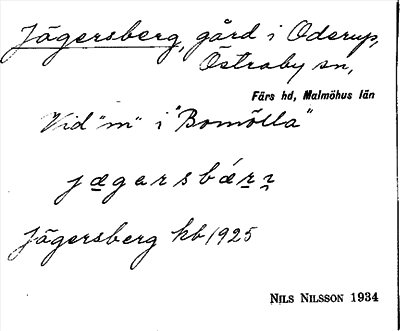 Jägersberg, gård i Oderup,
Östraby sn,
Färs hd, Malmöhus län
Vid "m" i "Bomölla"
jægarsbǽrɿ
Jägersberg kb 1925
NILS NILSSON 1934